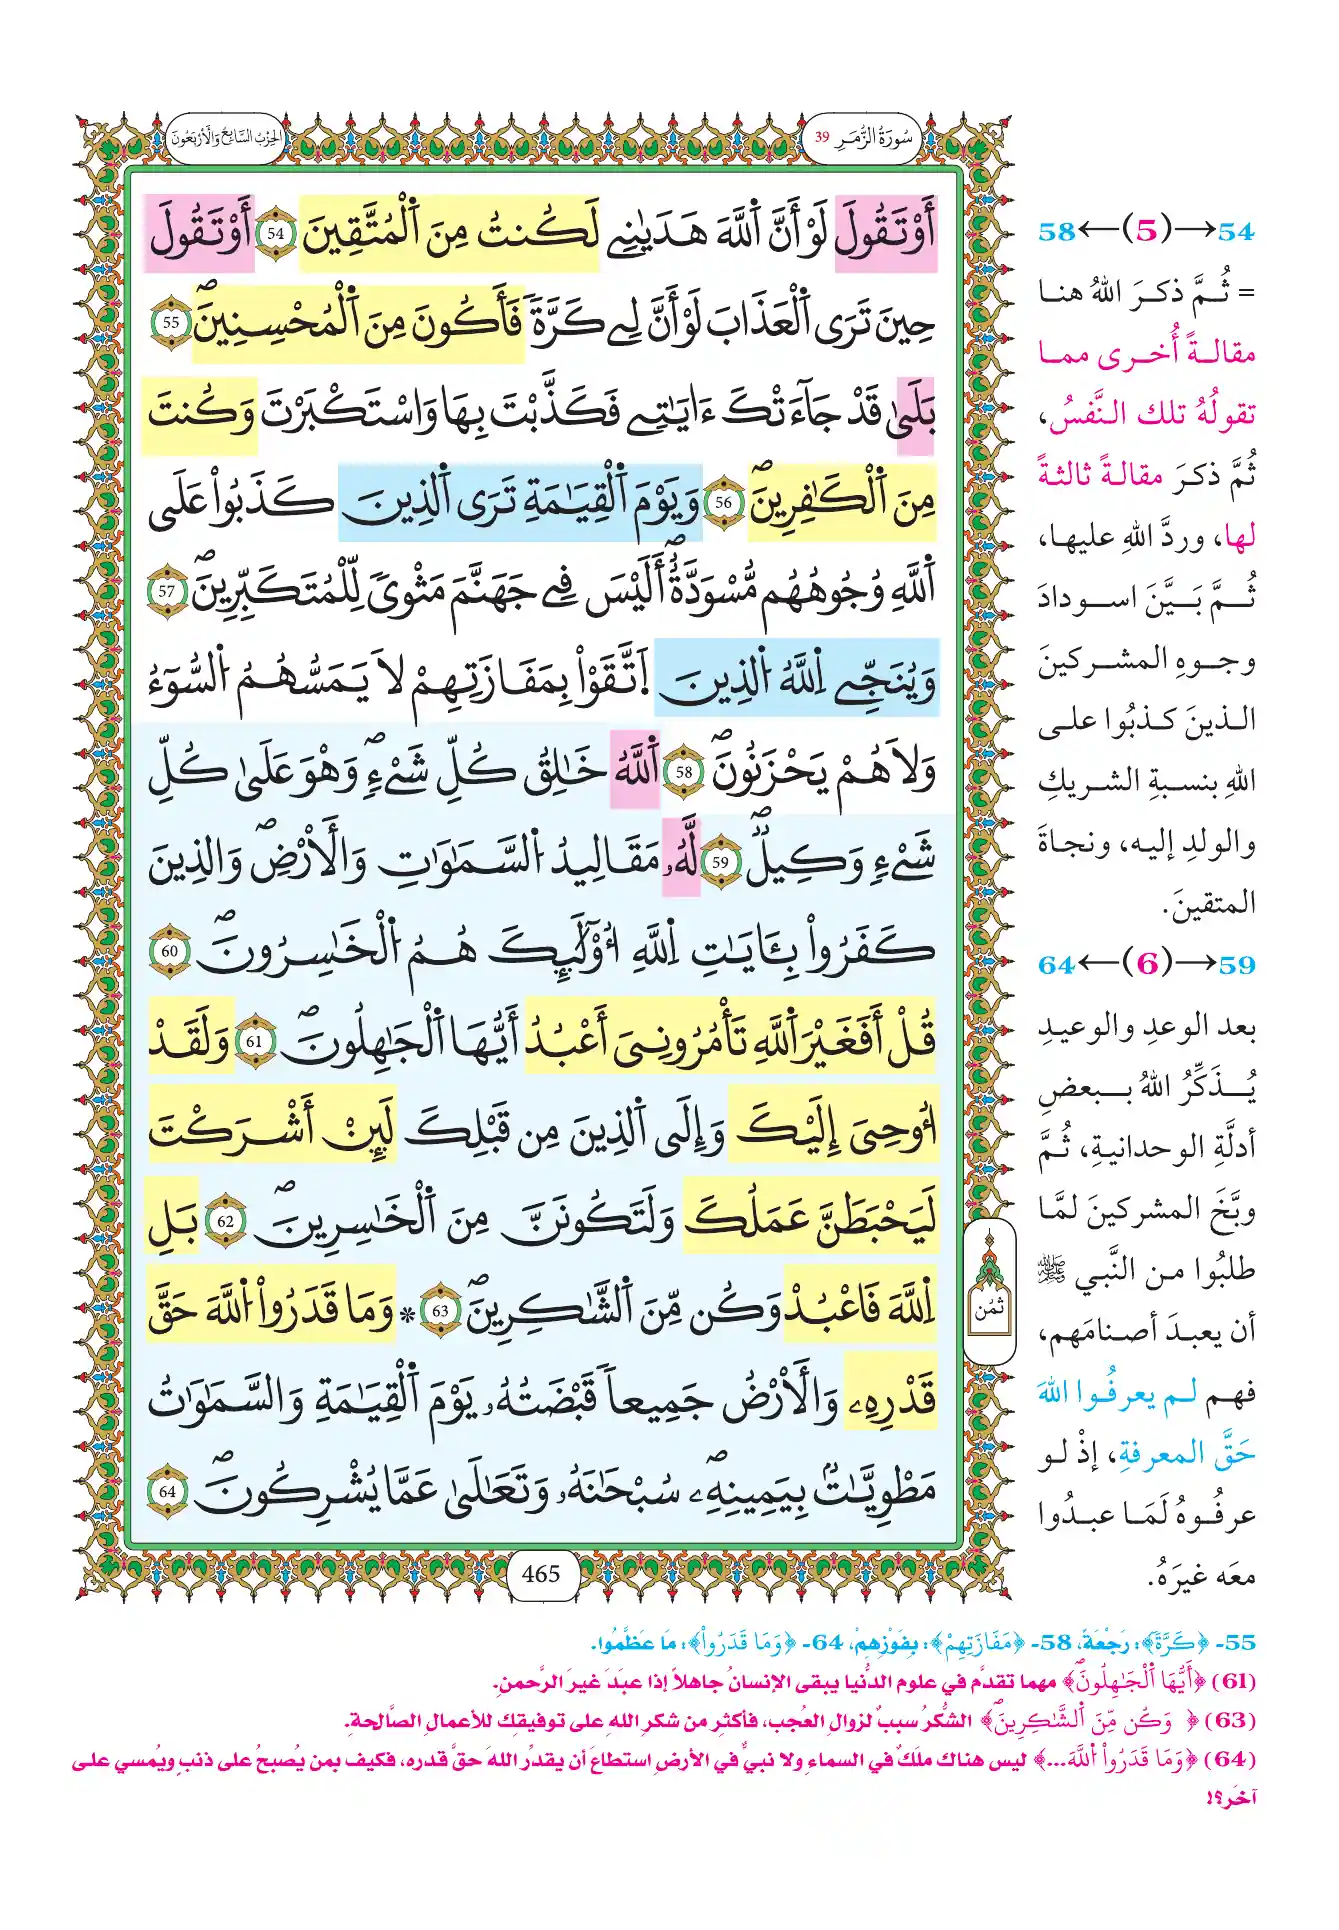 سُورَةُ الزُّمَرِ 39
الحِزْبُ السَّابِعُ وَالأَرْبَعُونَ
أَوْ تَقُولَ لَوْ أَنَّ اَ۬للَّهَ هَد۪يٰنِے لَكُنتُ مِنَ اَ۬لْمُتَّقِينَ 54 أَوْ تَقُولَ
حِينَ تَرَى اَ۬لْعَذَابَ لَوْ أَنَّ لِے كَرَّةٗ فَأَكُونَ مِنَ اَ۬لْمُحْسِنِينَۖ 55
بَل۪يٰ قَدْ جَآءَتْكَ ءَايَٰتِے فَكَذَّبْتَ بِهَا وَاسْتَكْبَرْتَ وَكُنتَ
مِنَ اَ۬لْكٰ۪فِرِينَۖ 56 وَيَوْمَ اَ۬لْقِيَٰمَةِ تَرَى اَ۬لذِينَ كَذَبُواْ عَلَى
اَ۬للَّهِ وُجُوهُهُم مُّسْوَدَّةٌۖ اَلَيْسَ فِے جَهَنَّمَ مَثْويٗ لِّلْمُتَكَبِّرِينَۖ 57
وَيُنَجِّے اِ۬للَّهُ اُ۬لذِينَ اَ۪تَّقَوْاْ بِمَفَازَتِهِمْ لَا يَمَسُّهُمُ اُ۬لسُّوٓءُ
وَلَا هُمْ يَحْزَنُونَۖ 58 اَ۬للَّهُ خَٰلِقُ كُلِّ شَےْءٖۖ وَهُوَ عَلَيٰ كُلِّ
شَےْءٖ وَكِيلٞۖ 59 لَّهُۥ مَقَالِيدُ اُ۬لسَّمَٰوَٰتِ وَالَارْضِۖ وَالذِينَ
كَفَرُواْ بِـَٔايَٰتِ اِ۬للَّهِ أُوْلَٰٓئِكَ هُمُ اُ۬لْخَٰسِرُونَۖ 60
قُلَ اَفَغَيْرَ اَ۬للَّهِ تَأْمُرُونِيَ أَعْبُدُ أَيُّهَا اَ۬لْجَٰهِلُونَۖ 61 وَلَقَدُ
ا۟وحِيَ إِلَيْكَ وَإِلَى اَ۬لذِينَ مِن قَبْلِكَ لَئِنَ اَشْرَكْتَ
لَيَحْبَطَنَّ عَمَلُكَ وَلَتَكُونَنَّ مِنَ اَ۬لْخَٰسِرِينَۖ 62 بَلِ
اِ۬للَّهَ فَاعْبُدْ وَكُن مِّنَ اَ۬لشَّٰكِرِينَۖ 63 * وَمَا قَدَرُواْ اُ۬للَّهَ حَقَّ
قَدْرِهِۦ وَالَارْضُ جَمِيعاٗ قَبْضَتُهُۥ يَوْمَ اَ۬لْقِيَٰمَةِ وَالسَّمَٰوَٰتُ
مَطْوِيَّٰتُۢ بِيَمِينِهِۦۖ سُبْحَٰنَهُۥ وَتَعَٰل۪يٰ عَمَّا يُشْرِكُونَۖ 64
ثمُن
465
54→(5)←58
= ثُمَّ ذكرَ اللهُ هنا
مقالةً أُخرى مما
تقولُهُ تلك النَّفسُ،
ثُمَّ ذكرَ مقالةً ثالثةً
لها، وردَّ اللهِ عليها،
ثُمَّ بَيَّنَ اسودادَ
وجوهِ المشركينَ
الذينَ كذبُوا على
اللهِ بنسبةِ الشريكِ
والولدِ إليه، ونجاةَ
المتقينَ.
59→(6)←64
بعد الوعدِ والوعيدِ
يُذَكِّرُ اللهُ ببعضِ
أدلَّةِ الوحدانيةِ، ثُمَّ
وبَّخَ المشركينَ لمَّا
طلبُوا من النَّبي ﷺ
أن يعبدَ أصنامَهم،
فهم لم يعرفُوا اللهَ
حَقَّ المعرفةِ، إذْ لو
عرفُوهُ لَمَا عبدُوا
معَه غيرَهُ.
55- ﴿كَرَّةٗ﴾: رَجْعَةً، 58- ﴿مَفَازَتِهِمْ﴾: بِفَوْزِهِمْ، 64- ﴿وَمَا قَدَرُواْ﴾: مَا عَظَّمُوا.
(61) ﴿أَيُّهَا اَ۬لْجَٰهِلُونَۖ﴾ مهما تقدَّم في علوم الدُّنيا يبقى الإنسانُ جاهلاً إذا عبَدَ غيرَ الرَّحمنِ.
(63) ﴿وَكُن مِّنَ اَ۬لشَّٰكِرِينَۖ﴾ الشُّكرُ سببٌ لزوال العُجب، فأكثر من شكرِ اللهِ على توفيقك للأعمال الصَّالحة.
(64) ﴿وَمَا قَدَرُواْ اُ۬للَّهَ...﴾ ليس هناك ملَكٌ في السماءِ ولا نبيٌّ في الأرضِ استطاعَ أن يقدرَ اللهَ حقَّ قدره، فكيف بمن يُصبحُ على ذنبٍ ويُمسي على
آخَر؟!